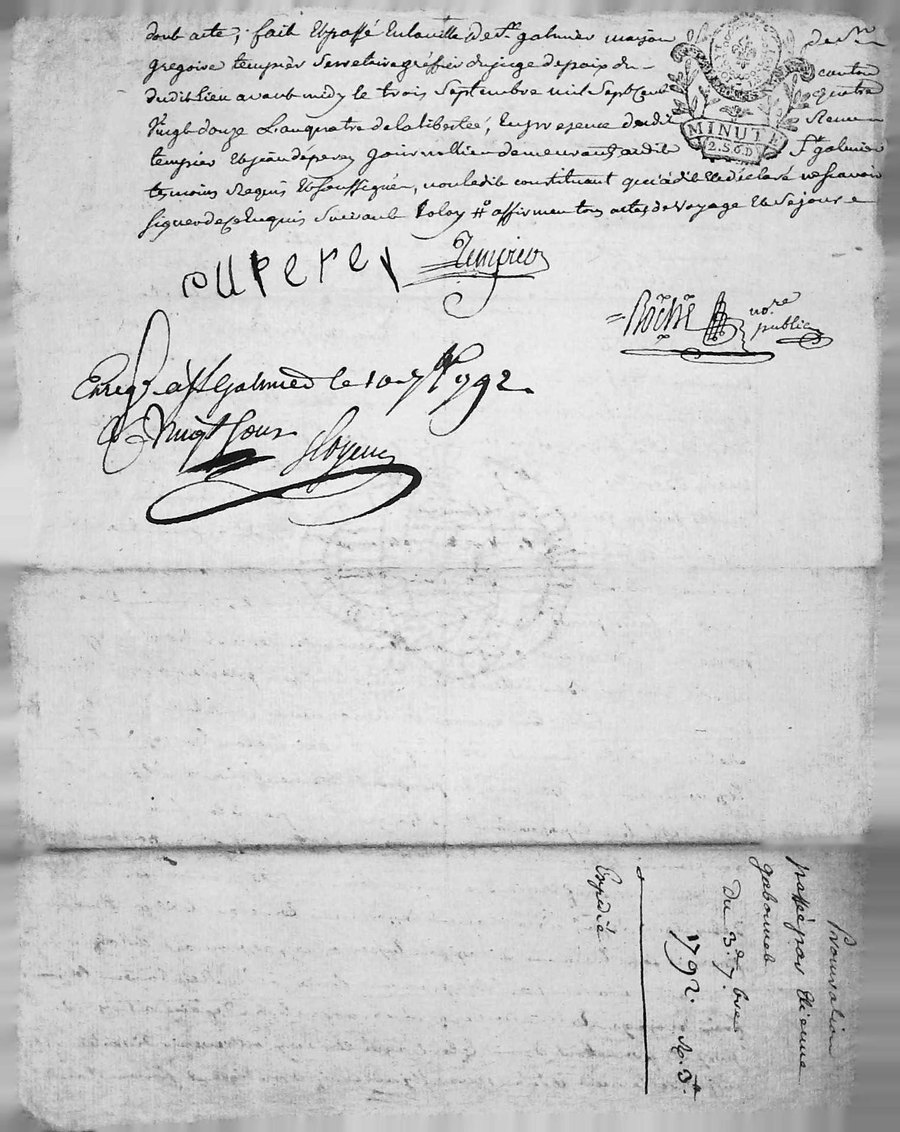 dont acte; fait et passé en la ville de St galmier maison de Sr
gregoire tempier Secretaire greffier du juge de paix du canton
dudit lieu avant midy le trois Septembre mil Sept Cent quatre
Vingt douze L'an quatre de la liberté, En presence dudit
tempier et jean duperey journallier demeurant audit St galmier
temoins Requis et Soussignés, non ledit constituant qui a dit et déclaré ne scavoir
signer de ce Enquis Suivant la loy affirmer tous actes de voyage et Sejour
duperey tempier
Roche nore
public
MINUTE
2.S.6.D
Enreg. a St Galmier le 10 7bre 1792
R. Vingt Sous
Procuration
passé par Etienne
du 3e 7bre
1792.
Expédié